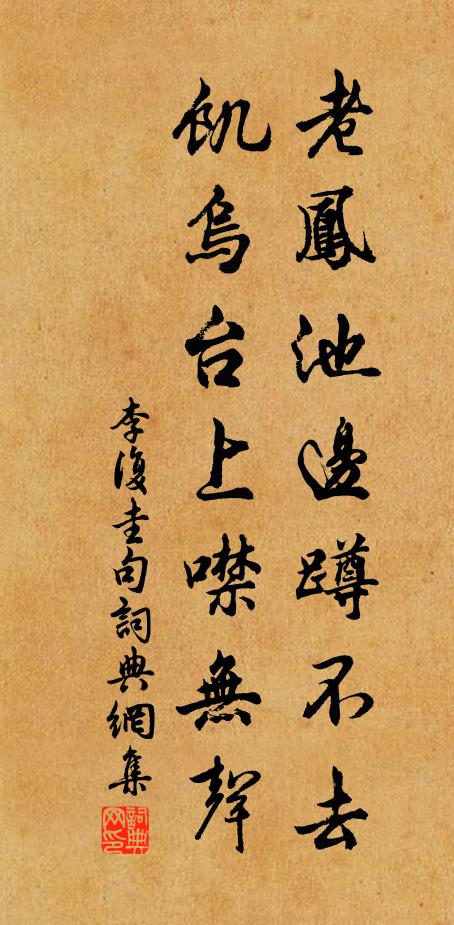 老鳳池邊蹲不去
飢烏台上噤無聲
李復圭句詞典網集
詞典網印